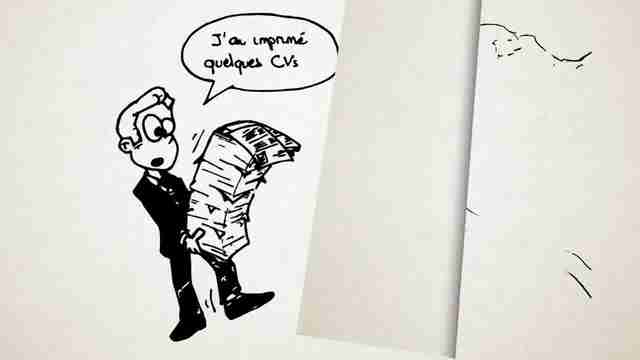 J'ai imprimé
quelques CVs